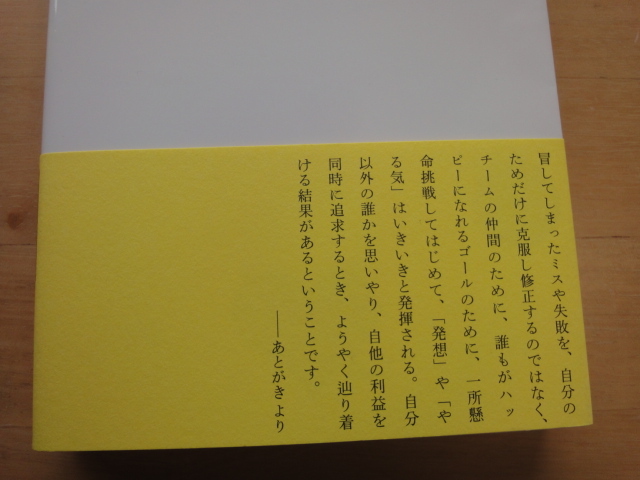 冒してしまったミスや失敗を、自分の
ためだけに克服し修正するのではなく、
チームの仲間のために、誰もがハッ
ピーになれるゴールのために、一所懸
命挑戦してはじめて、「発想」や「や
る気」はいきいきと発揮される。自分
以外の誰かを思いやり、自他の利益を
同時に追求するとき、ようやく辿り着
ける結果があるということです。
──あとがきより